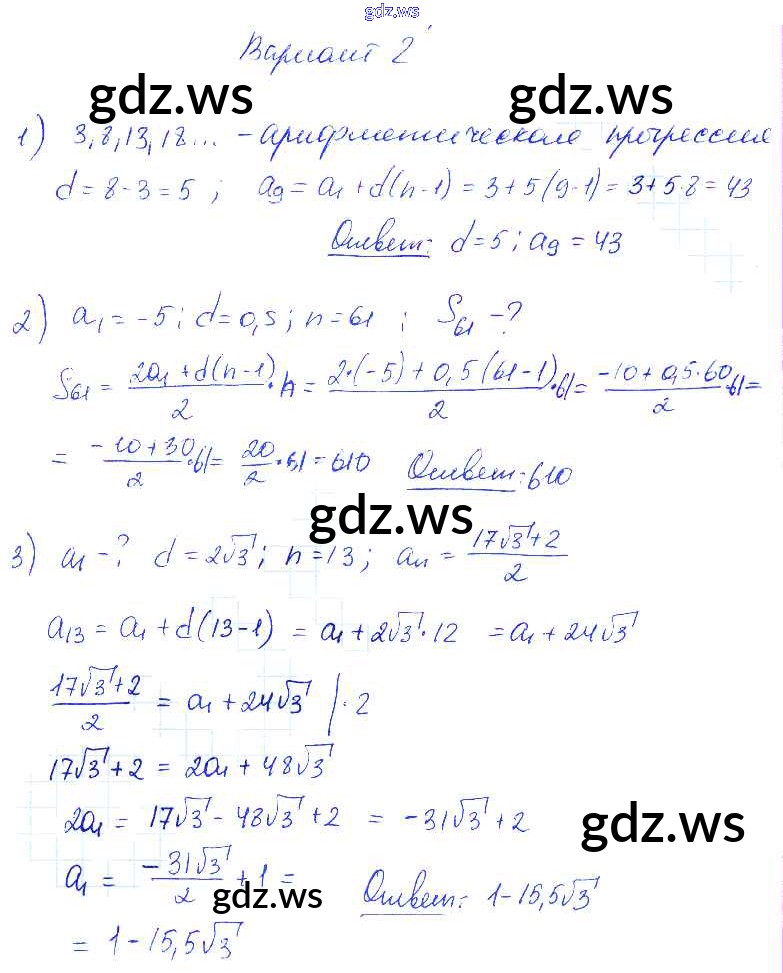 gdz.ws
Вариант 2
gdz.ws gdz.ws
1) 3, 8, 13, 18... - арифметическая прогрессия
d = 8 - 3 = 5 ; a₉ = a₁ + d(n-1) = 3 + 5(9-1) = 3 + 5·8 = 43
Ответ: d = 5 ; a₉ = 43
2) a₁ = -5 ; d = 0,5 ; n = 61 ; S₆₁ - ?
S₆₁ = (2a₁ + d(n-1))/2 · n = (2·(-5) + 0,5(61-1))/2 · 61 = (-10 + 0,5·60)/2 · 61 =
= (-10 + 30)/2 · 61 = 20/2 · 61 = 610 Ответ: 610
gdz.ws
3) a₁ - ? d = 2√3 ; n = 13 ; aₙ = (17√3 + 2)/2
a₁₃ = a₁ + d(13-1) = a₁ + 2√3 · 12 = a₁ + 24√3
(17√3 + 2)/2 = a₁ + 24√3 | · 2
17√3 + 2 = 2a₁ + 48√3
2a₁ = 17√3 - 48√3 + 2 = -31√3 + 2
gdz.ws
a₁ = (-31√3)/2 + 1 = Ответ: 1 - 15,5√3
gdz.ws
= 1 - 15,5√3